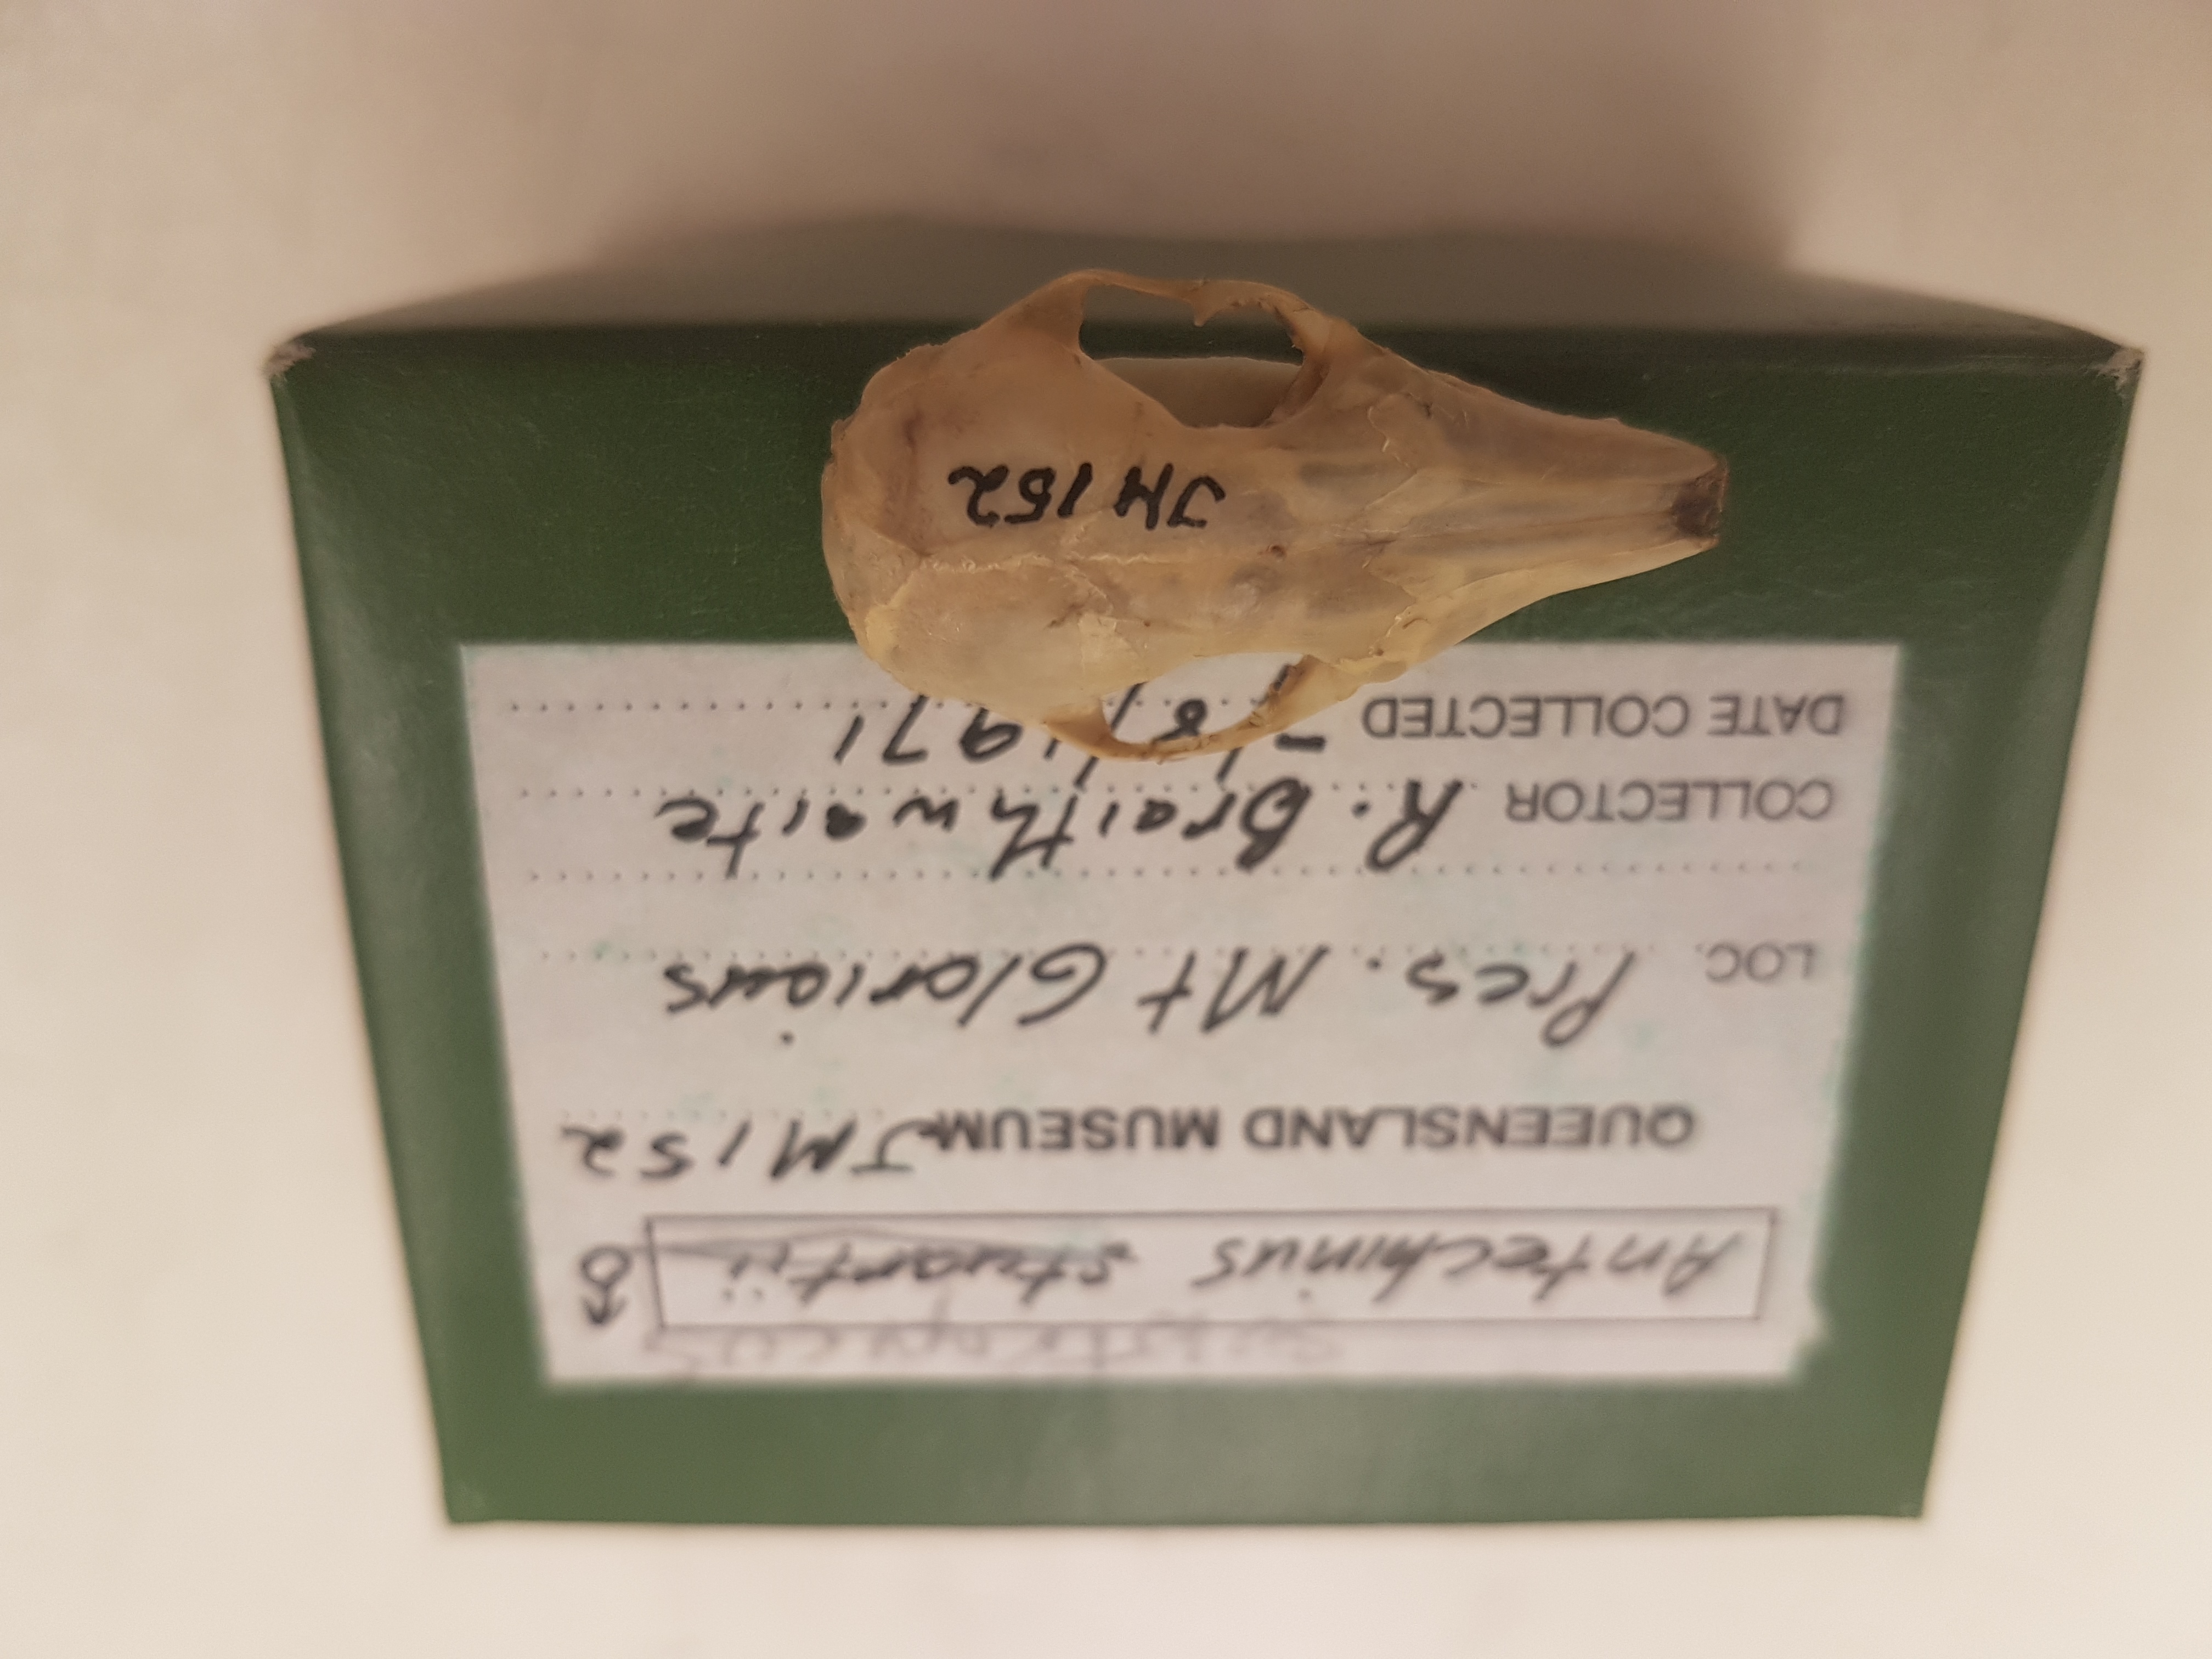 subtropicus
Antechinus stuartii ♂
QUEENSLAND MUSEUM JM152
LOC. Pres. Mt Glorious
COLLECTOR R. Braithwaite
DATE COLLECTED -/8/1971
JM 152